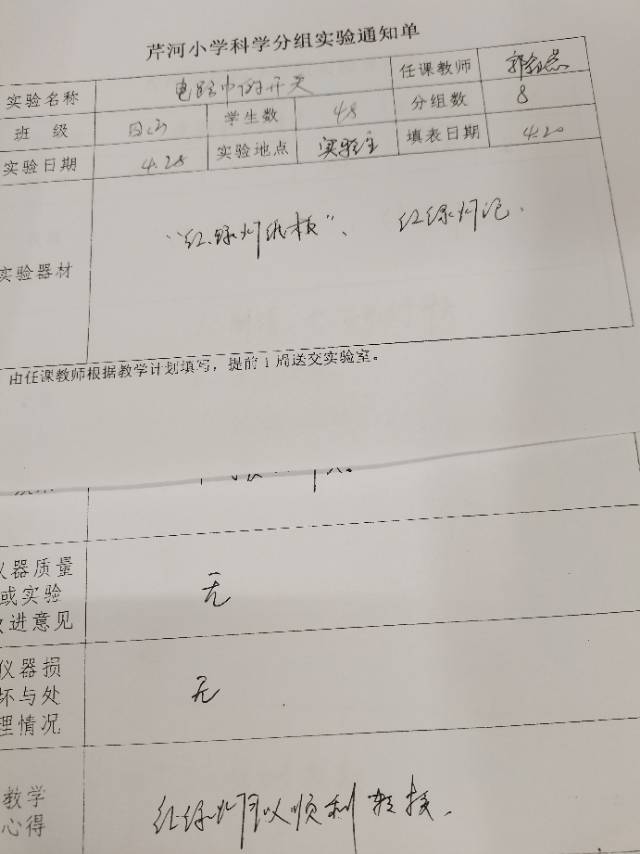 芹河小学科学分组实验通知单
实验名称 电路中的开关 任课教师
班 级 学生数 48 分组数 8
实验日期 4.28 实验地点 实验室 填表日期 4.20
实验器材 “红绿灯底板”、 红绿灯泡.
由任课教师根据教学计划填写，提前1周送交实验室。
仪器质量
或实验
改进意见
无
仪器损
坏与处
理情况
无
教学
心得
红绿灯可以顺利转换.